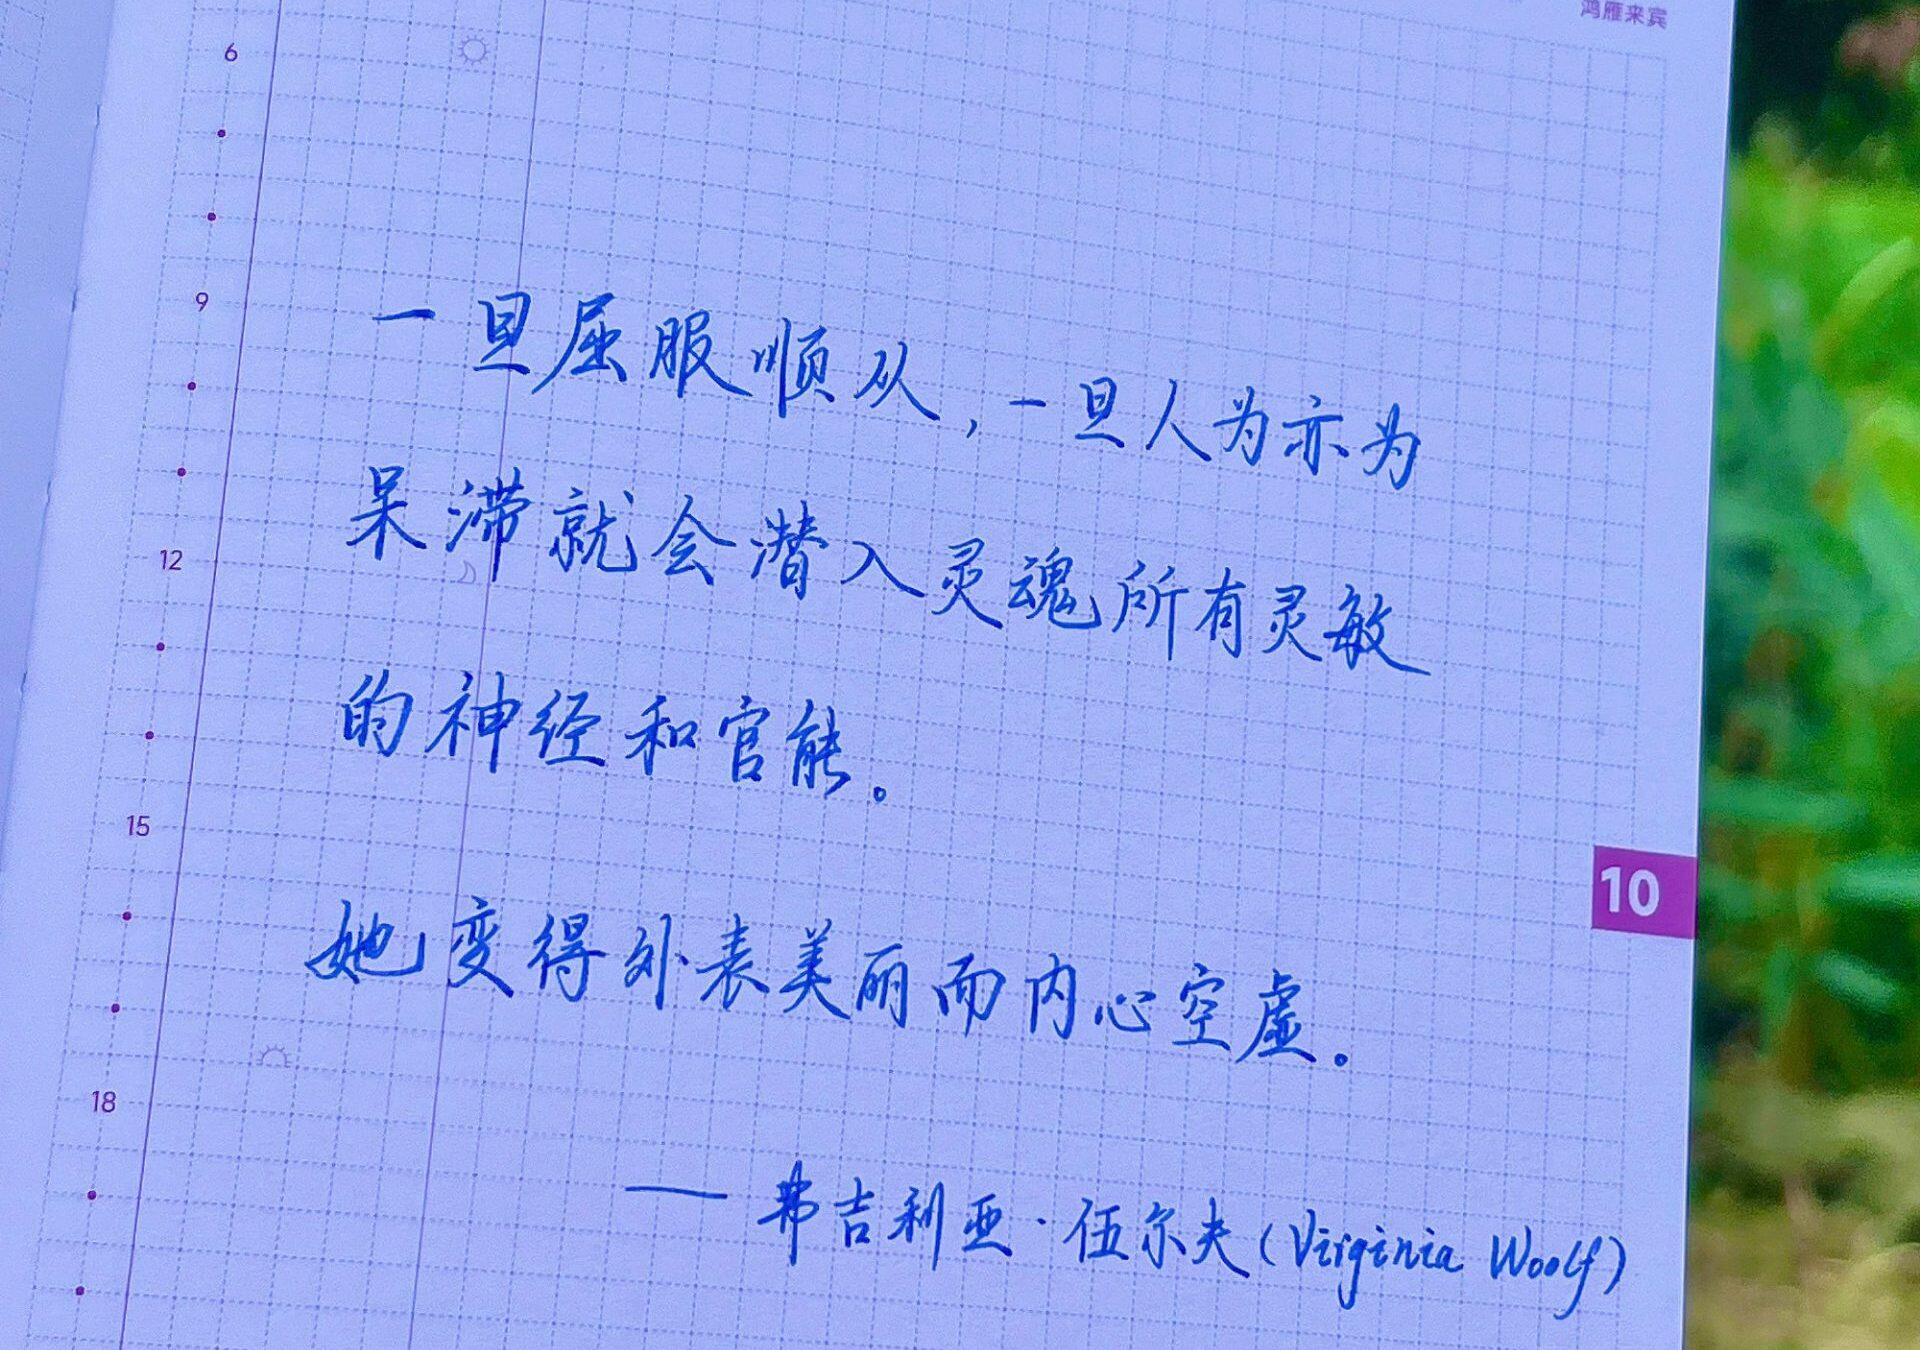 鸿雁来宾
6
9
一旦屈服顺从，一旦人为亦为
呆滞就会潜入灵魂所有灵敏
12
的神经和官能。
15
10
她变得外表美丽而内心空虚。
18
——弗吉利亚·伍尔夫(Virginia Woolf)